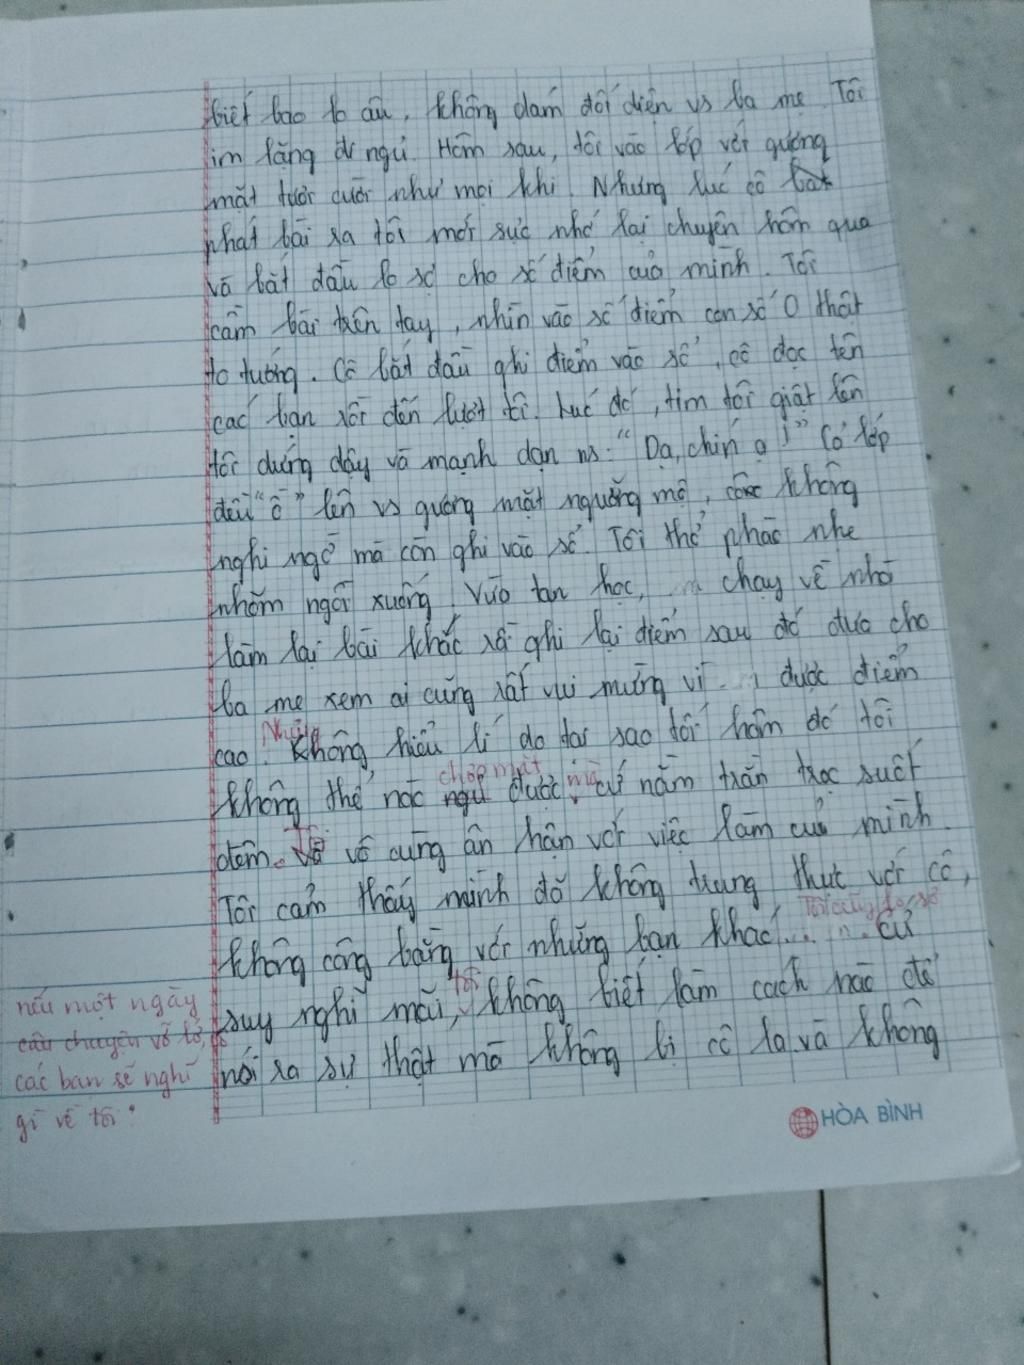 biết bao lo âu, không dám đối diện vs ba mẹ. Tôi
im lặng đi ngủ. Hôm sau, tôi vào lớp với gương
mặt tươi cười như mọi khi. Nhưng lúc cô
phát bài ra tôi mới sực nhớ lại chuyện hôm qua
và bắt đầu lo sợ cho số điểm của mình. Tôi
cầm bài trên tay, nhìn vào số điểm con số 0 thật
to tướng. Cô bắt đầu ghi điểm vào sổ, cô đọc tên
các bạn rồi đến lượt tôi. Lúc đó, tim tôi giật lên
tôi đứng dậy và mạnh dạn ns: "Dạ, chín ạ!" Cả lớp
đều "ồ" lên vs gương mặt ngưỡng mộ, không
nghi ngờ mà còn ghi vào sổ. Tôi thở phào nhẹ
nhõm ngồi xuống. Vừa tan học, chạy về nhà
làm lại bài khác rồi ghi lại điểm sau đó đưa cho
ba mẹ xem ai cũng rất vui mừng vì được điểm
Nhưng
cao. Không hiểu lí do tại sao tối hôm đó tôi
chợp mắt mà
không thể nào ngủ được, cứ nằm trằn trọc suốt
đêm. Tôi vô cùng ân hận với việc làm của mình.
Tôi cảm thấy mình đã không trung thực với cô,
Tôi cũng lo sợ
không công bằng với những bạn khác... cứ
tôi
suy nghĩ mãi, không biết làm cách nào để
nói ra sự thật mà không bị cô la và không
nếu một ngày
câu chuyện vỡ lở,
các bạn sẽ nghĩ
gì về tôi?
HÒA BÌNH